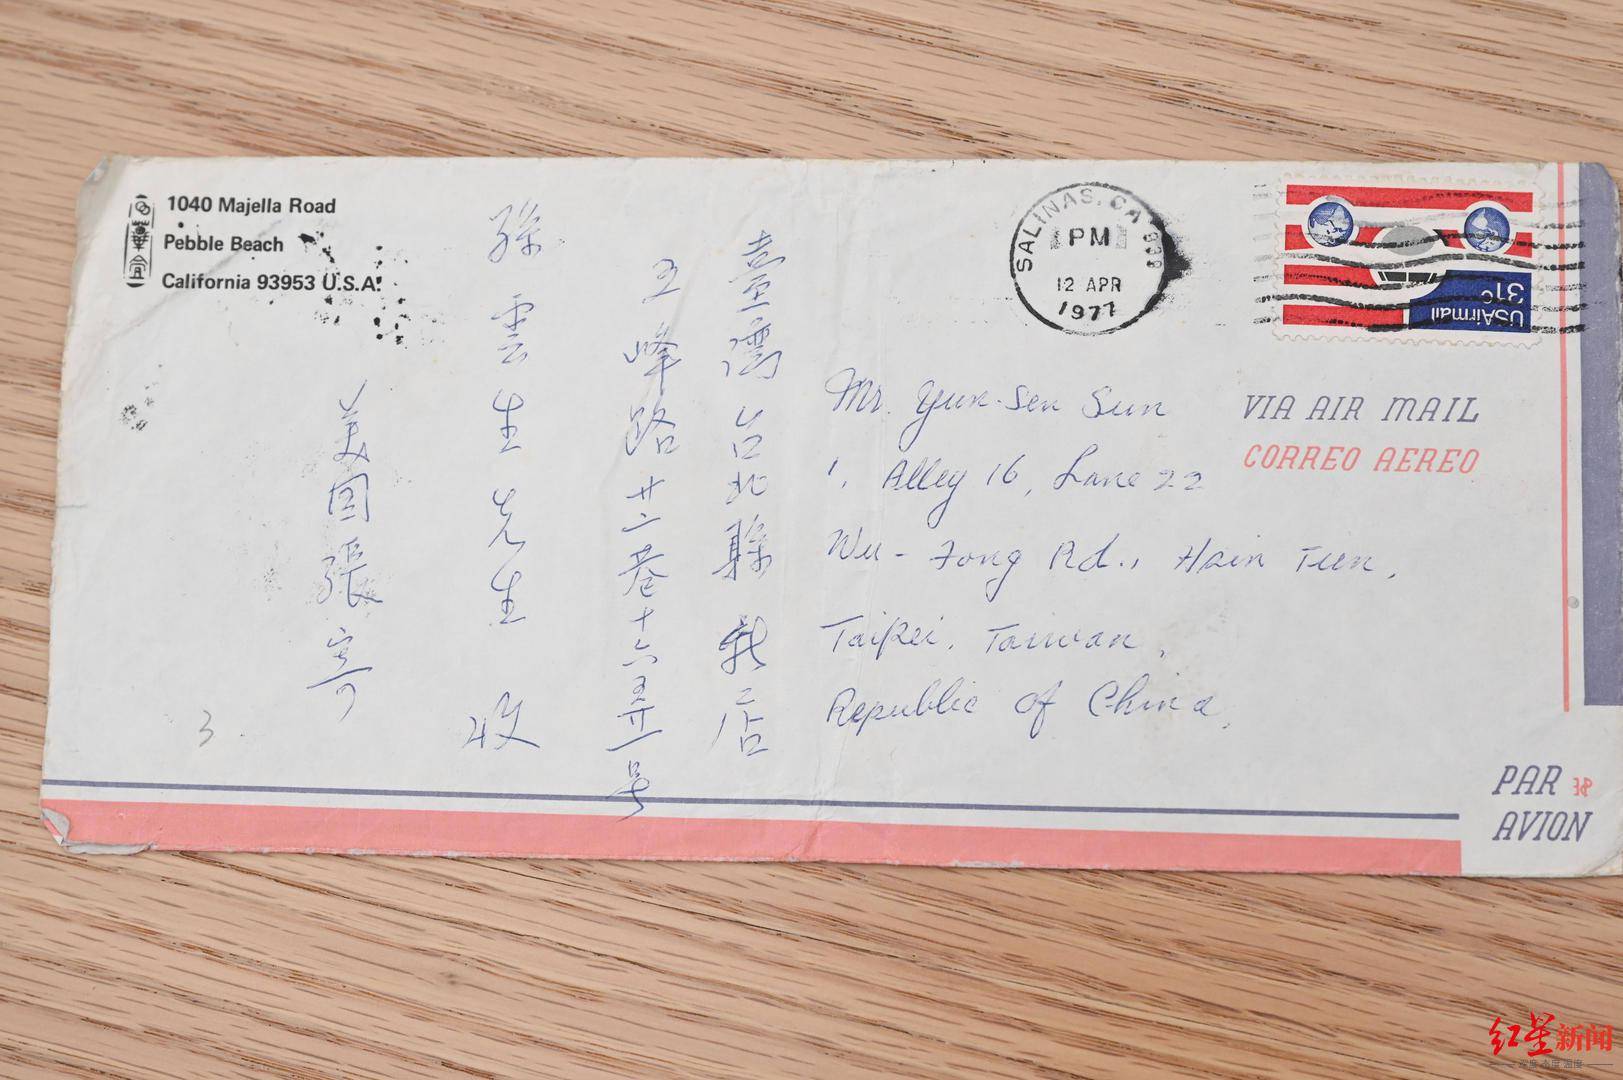 1040 Majella Road
Pebble Beach
California 93953 U.S.A.
SALINAS, CA 939
PM
12 APR
1977
USAirmail
31c
VIA AIR MAIL
CORREO AEREO
Mr. Yun-Sen Sun
1, Alley 16, Lane 22
Wu-Fong Rd., Hsin Tien,
Taipei, Taiwan,
Republic of China,
臺灣台北縣新店
五峰路廿二巷十六弄一号
孫雲生先生 收
美国張寄
3
PAR
AVION
红星新闻
深度 态度 温度